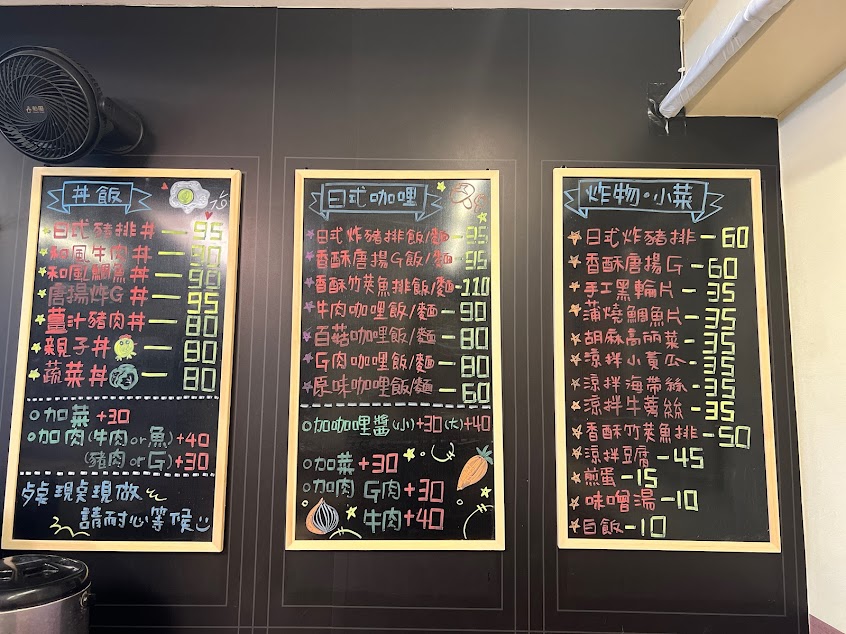 丼飯
日式豬排丼 — 95
和風牛肉丼 — 90
和風鯛魚丼 — 90
唐揚炸G丼 — 95
薑汁豬肉丼 — 80
親子丼 — 80
蔬菜丼 — 80
加菜+30
加肉(牛肉or魚)+40
(豬肉or G)+30
現點現做
請耐心等候
日式咖哩
日式炸豬排飯/麵 - 95
香酥唐揚G飯/麵 - 95
香酥竹筴魚排飯/麵 - 110
牛肉咖哩飯/麵 - 90
百菇咖哩飯/麵 - 80
G肉咖哩飯/麵 - 80
原味咖哩飯/麵 - 60
加咖哩醬(小)+30(大)+40
加菜+30
加肉 G肉+30
牛肉+40
炸物·小菜
日式炸豬排 - 60
香酥唐揚G - 60
手工黑輪片 - 35
蒲燒鯛魚片 - 35
胡麻高麗菜 - 35
涼拌小黃瓜 - 35
涼拌海帶絲 - 35
涼拌牛蒡絲 - 35
香酥竹筴魚排 - 50
涼拌豆腐 - 45
煎蛋 - 15
味噌湯 - 10
白飯 - 10